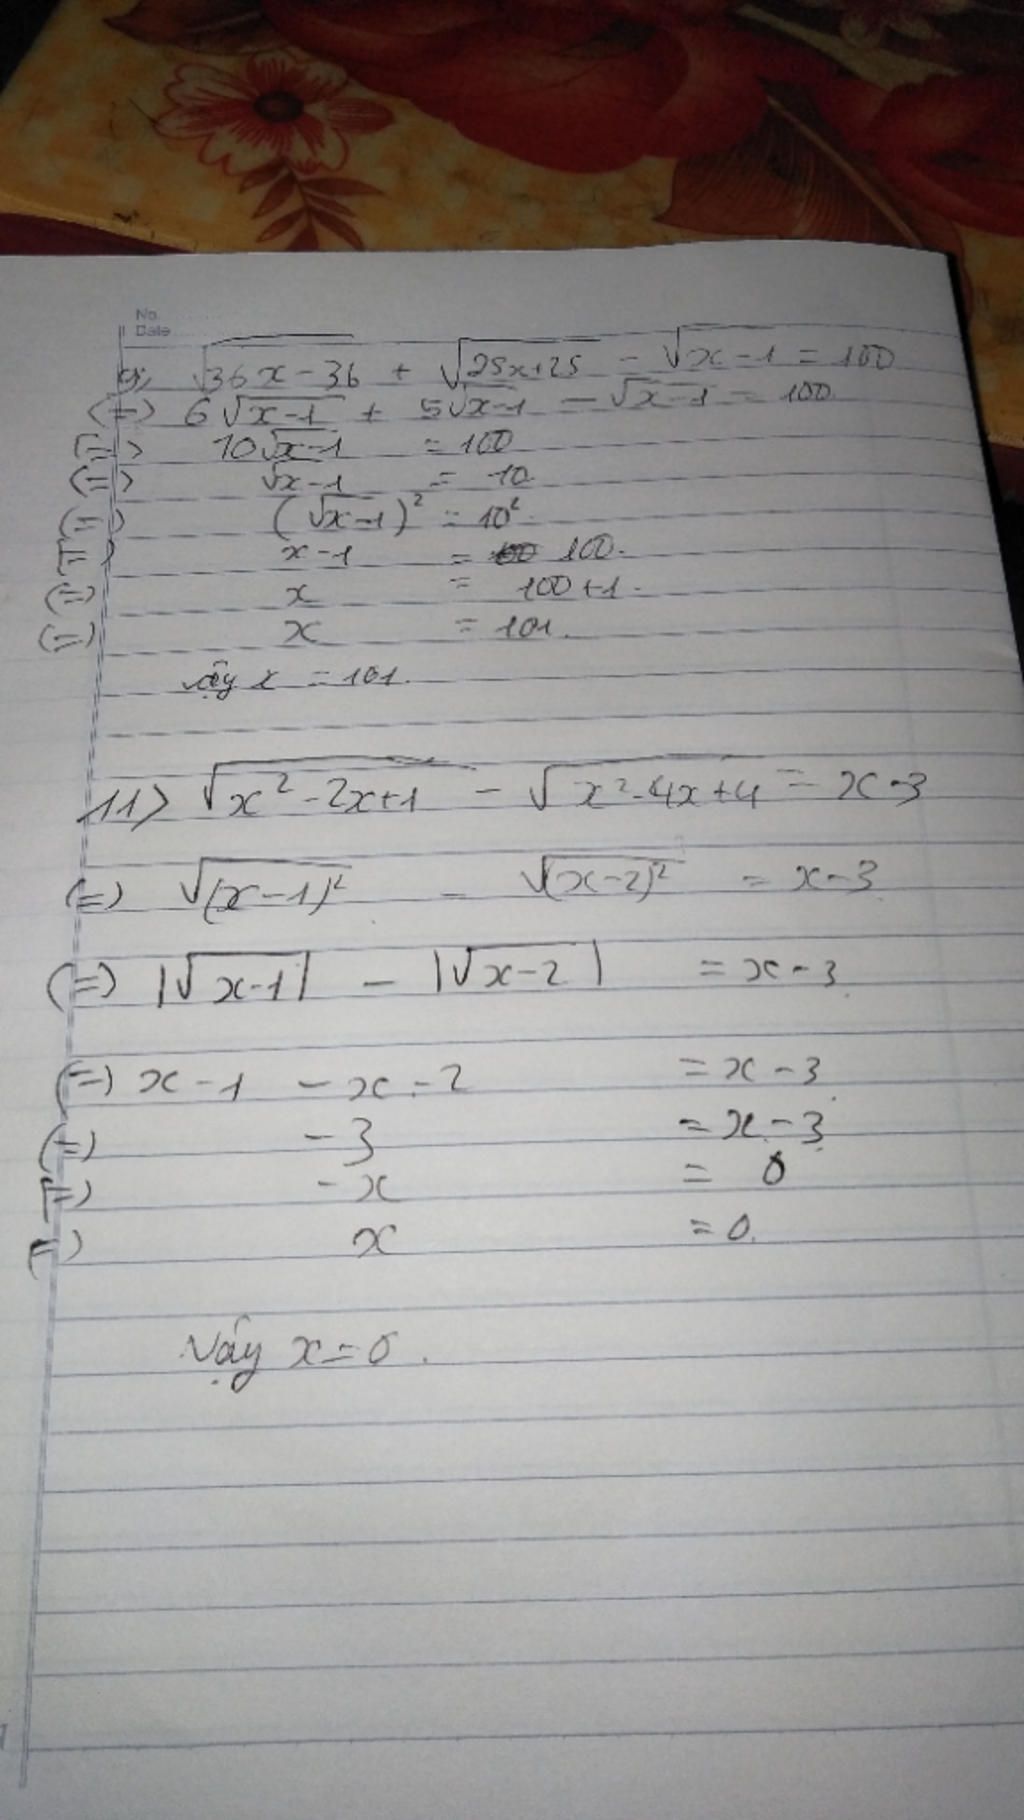 No.
Date
g, √36x-36 + √25x+25 - √x-1 = 100
(=) 6√x-1 + 5√x-1 - √x-1 = 100
(=) 10√x-1 = 100
(=) √x-1 = 10
(=) (√x-1)² = 10²
(=) x-1 = 100.
(=) x = 100+1.
(=) x = 101.
vậy x = 101.
11> √x²-2x+1 - √x²-4x+4 = x-3
(=) √(x-1)² - √(x-2)² = x-3
(=) |√x-1| - |√x-2| = x-3
(=) x-1 - x-2 = x-3
(=) -3 = x-3
(=) -x = 0
(=) x = 0.
Vậy x=0.